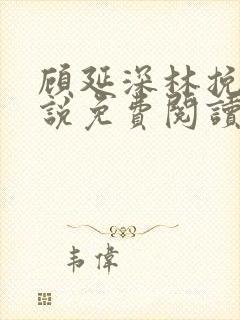 顾延深林挽
說免費閱讀
韦偉